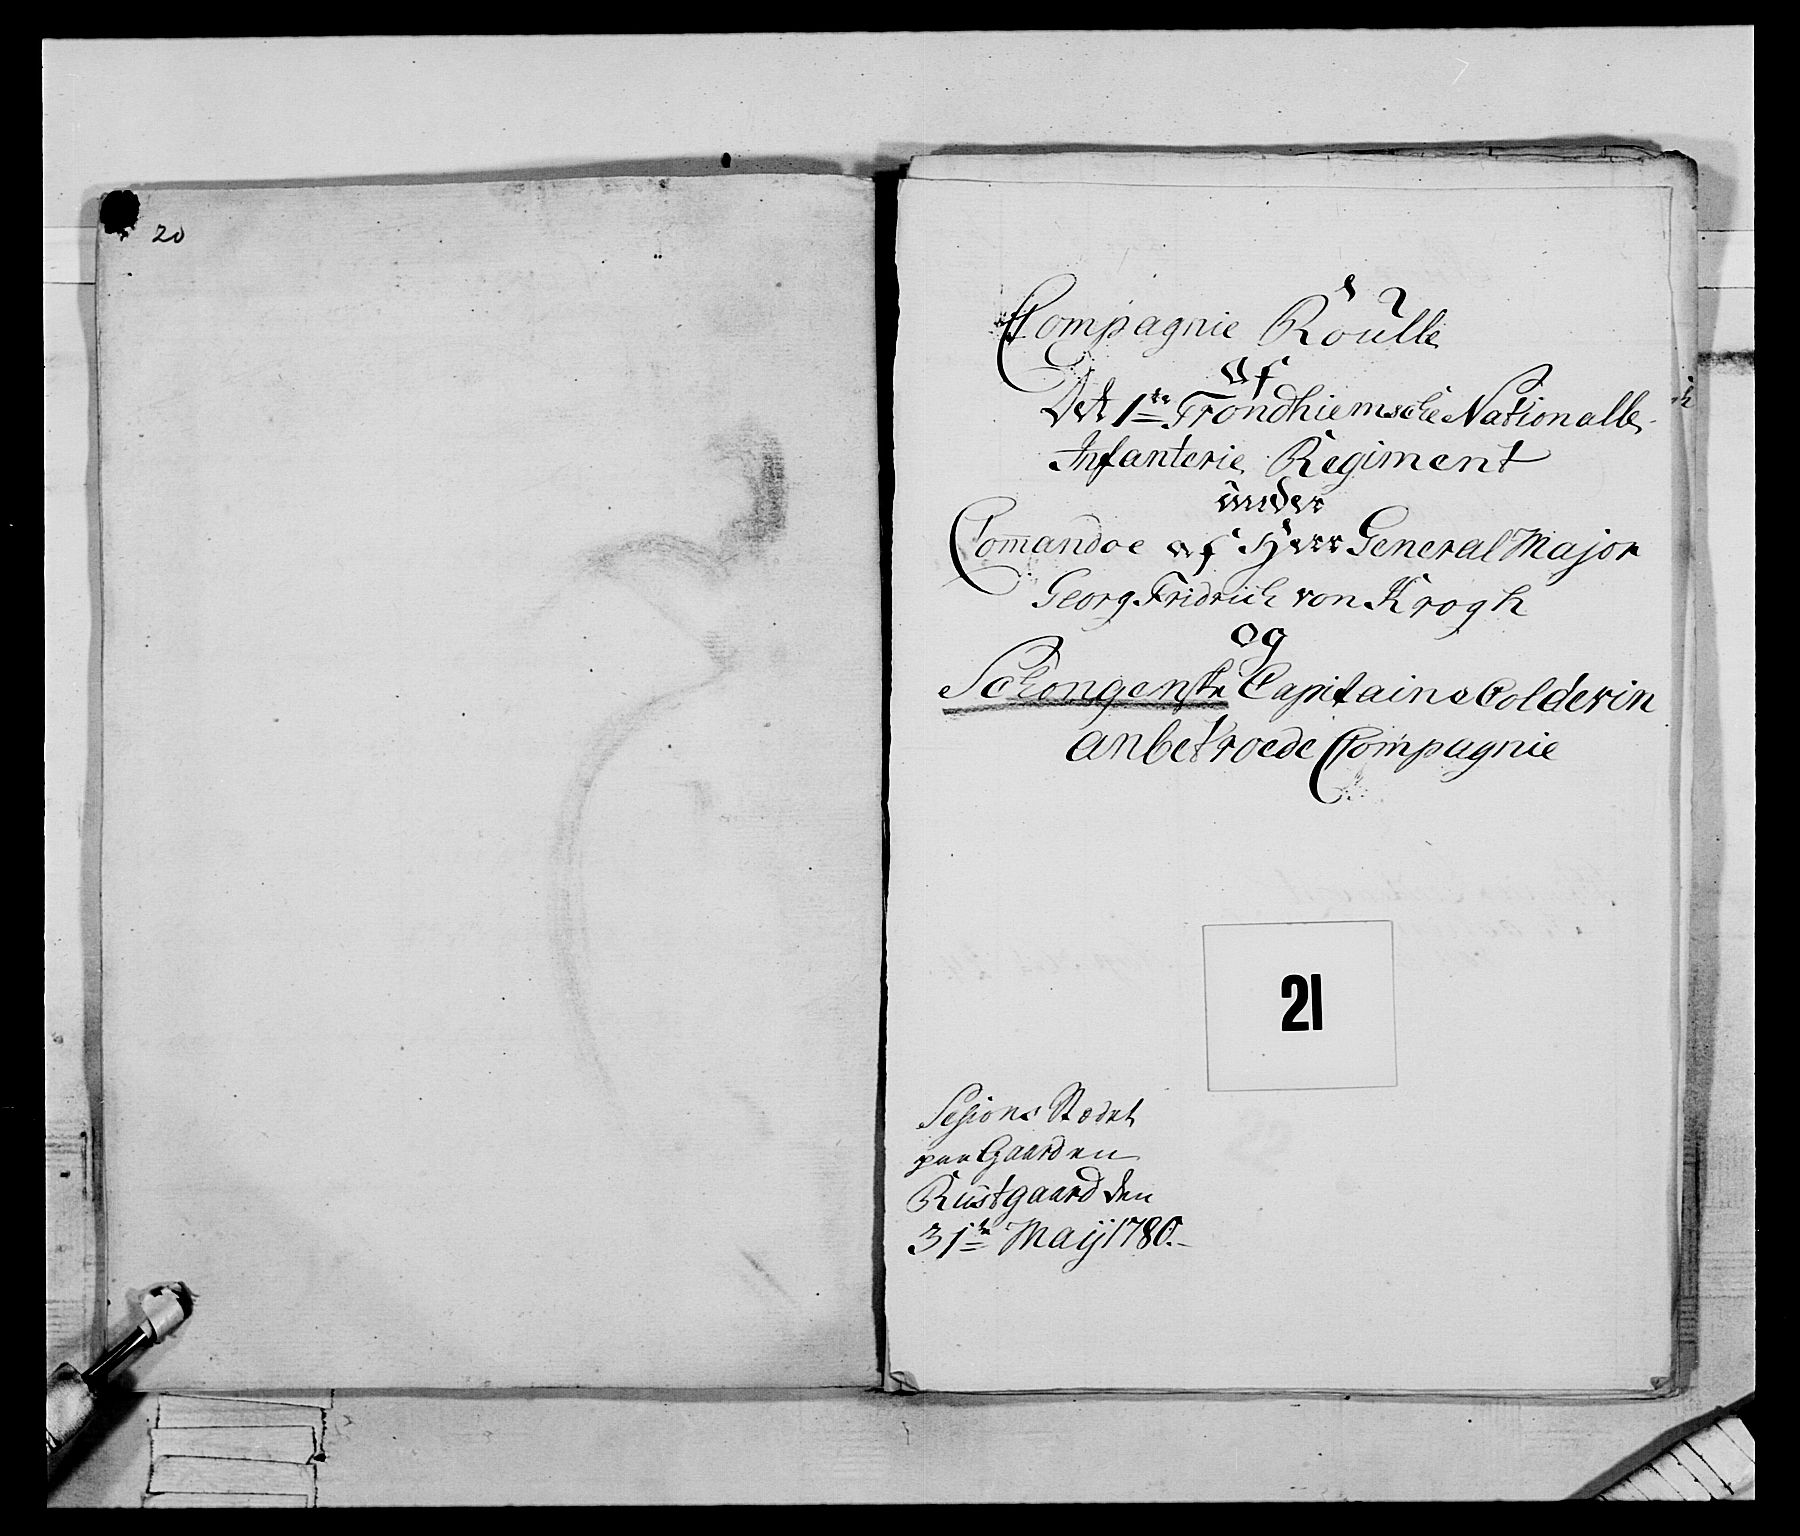 20
Compagnie Roulle
af
Det 1te Trondhiemsche Nationalle
Infanterie Regiment
under
Comandoe af Herr General Major
Georg Fridrich von Krogh
og
Schongenske Capitaine Colderin
anbetroede Compagnie
21
Sesions Stedet
paa Gaarden
Rustgaard den
31te Maij 1780.